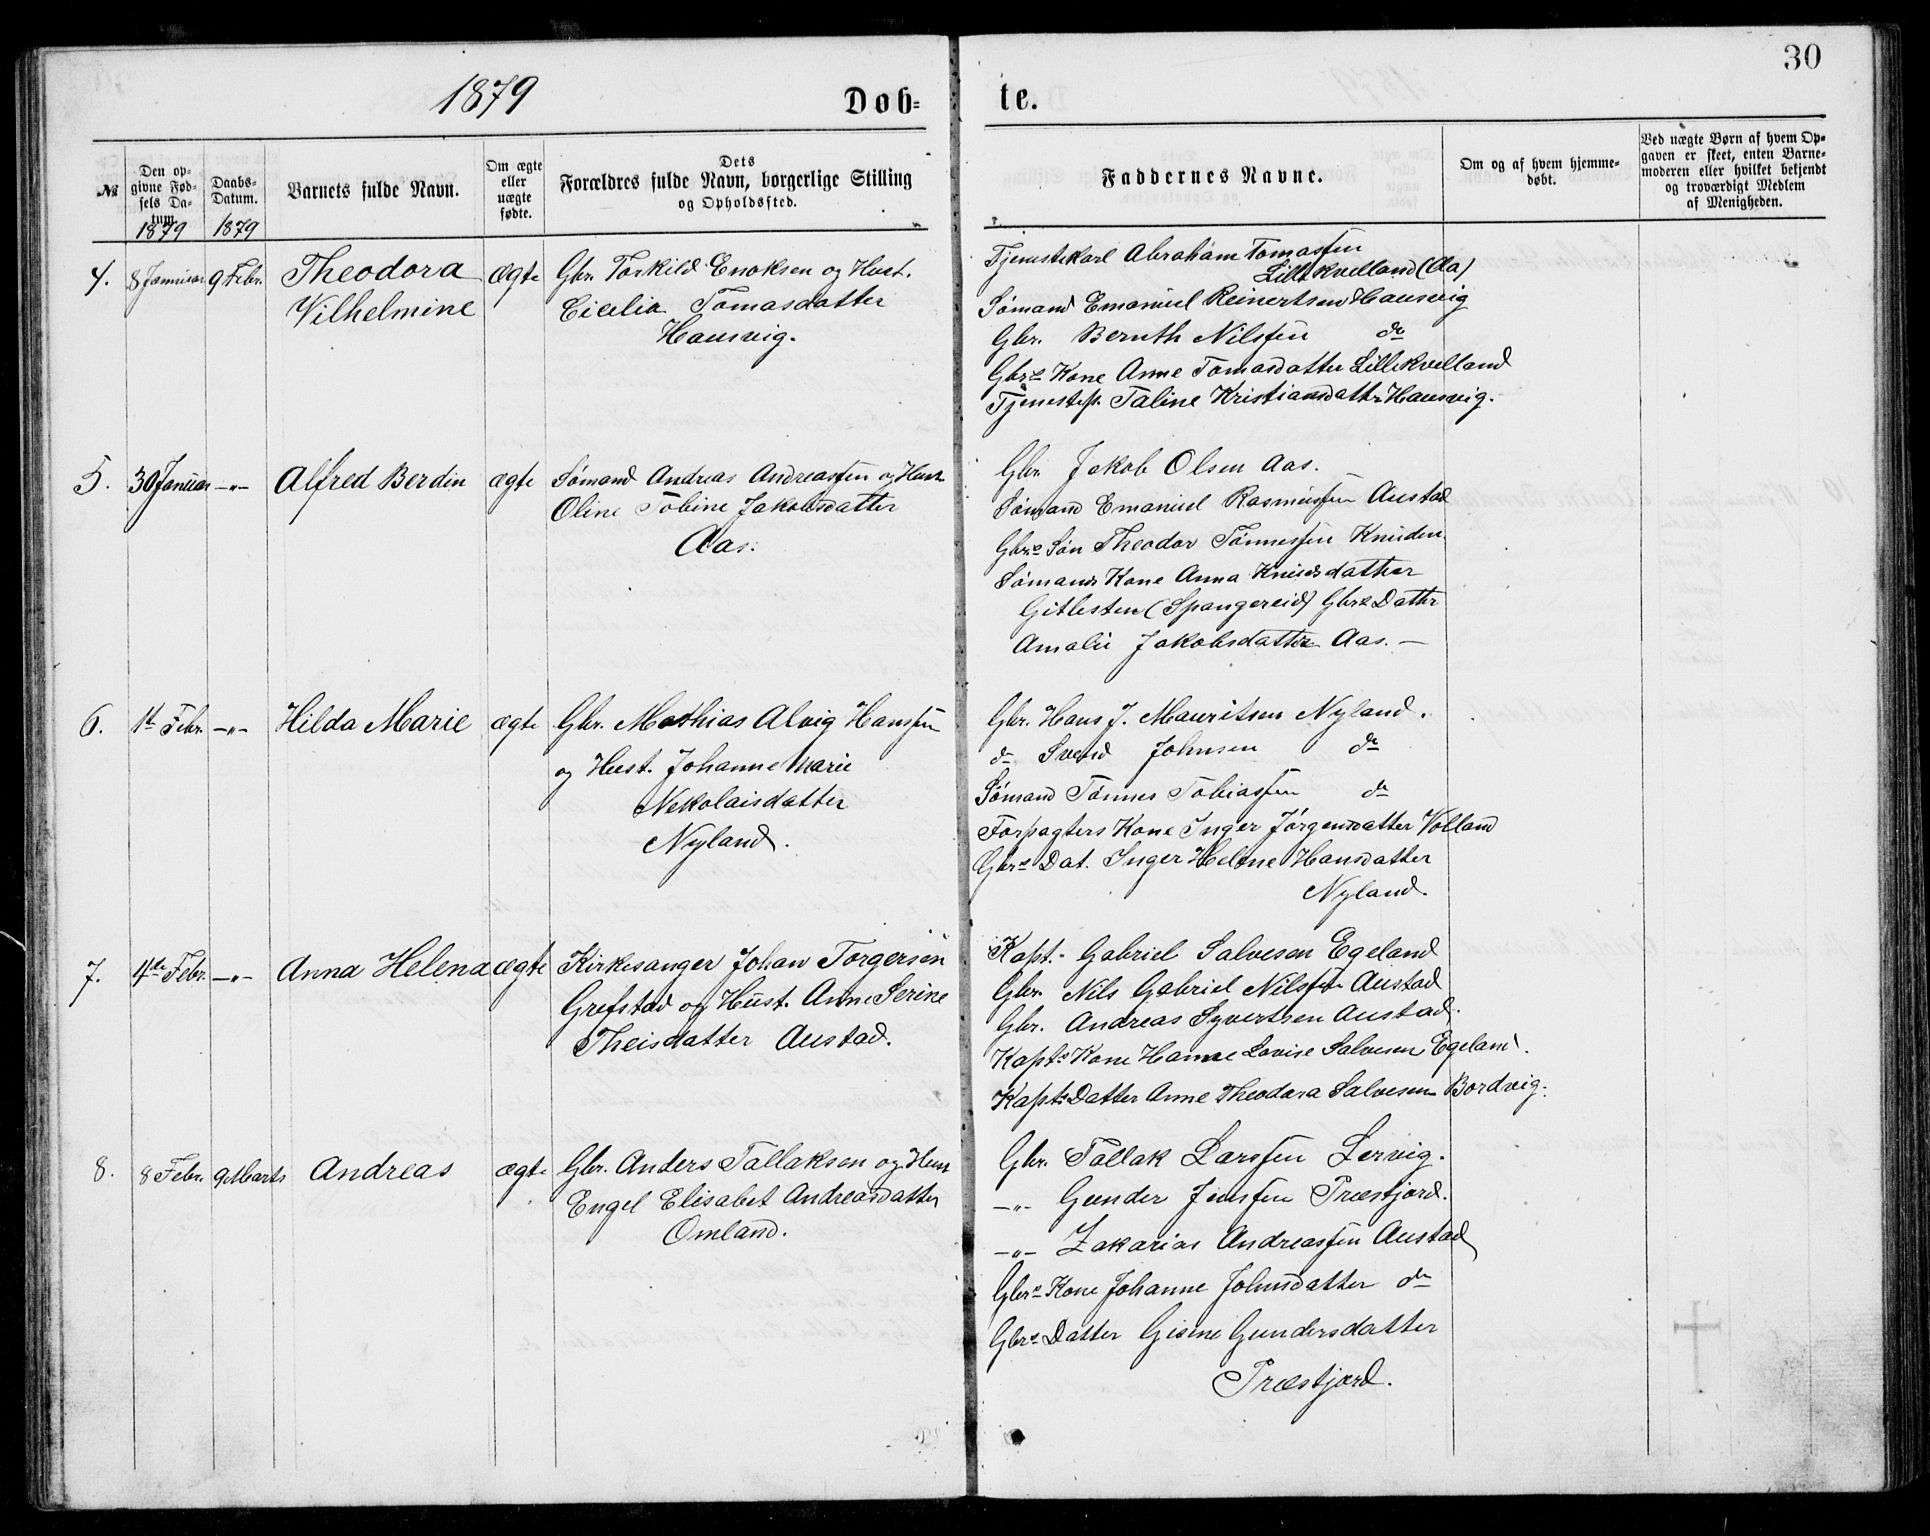 30
1879
Døb-
te.
№
Den op-
givne Fød-
sels Da-
tum.
1879
Daabs-
Datum.
1879
Barnets fulde Navn.
Om ægte
eller
uægte
fødte.
Dets
Forældres fulde Navn, borgerlige Stilling
og Opholdssted.
Faddernes Navne.
Om og af hvem hjemme-
døbt.
Ved uægte Børn af hvem Op-
gaven er skeet, enten Barne-
moderen eller hvilket bekjendt
og troværdigt Medlem
af Menigheden.
4. 8 Januar 9 Febr. Theodora
Wilhelmine
ægte
Gbr. Torkild Enoksen og Hust.
Cicelia Tomasdatter
Hausvig.
Tjenestekarl Abraham Tomassen
Lillekvelland (Aa)
Sømand Emanuel Reinertsen Hausvig
Gbr. Bernth Nilssen do
Gbrs Kone Anne Tomasdatter Lillekvelland
Tjenestep. Taline Kristiansdatter Hausvig.
5. 30 Januar -„- Alfred Berdin ægte
Sømand Andreas Andreassen og Hust
Oline Tobine Jakobsdatter
Aas.
Gbr. Jakob Olsen Aas.
Sømand Emanuel Rasmussen Austad
Gbrs Søn Theodor Tønnessen Knuden
Sømands Kone Anna Knudsdatter
Gitlesten (Spangereid) Gbrs Datter
Amalie Jakobsdatter Aas. —
6. 1st Febr. -„- Hilda Marie ægte
Gbr. Mathias Alvig Hanssen
og Hust. Johanne Marie
Nekolaisdatter
Nyland.
Gbr. Hans J. Mauritsen Nyland.
do Svend Johnsen do
Sømand Tønnes Tobiassen do
Forpagters Kone Inger Jørgensdatter Volland
Gbrs Dat. Inger Helene Hansdatter
Nyland.
7. 4de Febr. -„- Anna Helena ægte
Kirkesanger Johan Torgersen
Grefstad og Hust. Anne Serine
Theisdatter Austad.
Kapt. Gabriel Salvesen Egeland
Gbr. Nils Gabriel Nilssen Austad
Gbr. Andreas Syvertsen Austad.
Kapts Kone Hanne Lovise Salvesen Egeland.
Kapts Datter Anne Theodora Salvesen Bordvig.
8. 8 Febr. 9 Marts Andreas ægte
Gbr. Anders Tallaksen og Hus
Engel Elisabet Andreasdatter
Omland.
Gbr. Tallak Larssen Lervig.
-„- Gunder Jenssen Træstjord.
-„- Zakarias Andreassen Austad
Gbrs Kone Johanne Johnsdatter do
Gbrs Datter Gisine Gundersdatter
Træstjord.